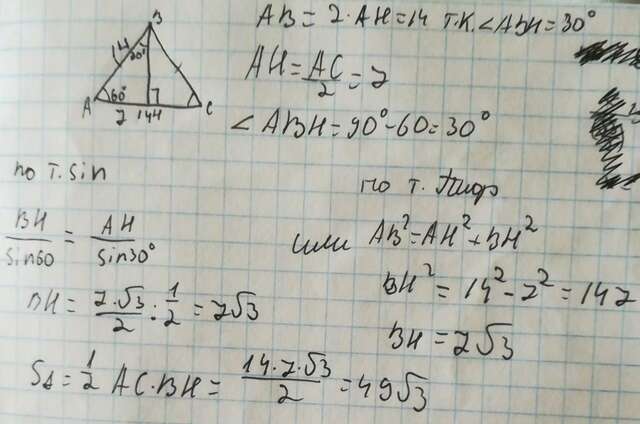 B
14
30°
A
60°
C
7
14
H
AB = 2·AH = 14 т.к. ∠ABH = 30°
AH = AC/2 = 7
∠ABH = 90° - 60 = 30°
по т. sin
BH/sin60 = AH/sin30°
BH = 7·√3/2 : 1/2 = 7√3
по т. Пиф
или AB² = AH² + BH²
BH² = 14² - 7² = 147
BH = 7√3
S∆ = 1/2 AC·BH = 14·7·√3/2 = 49√3